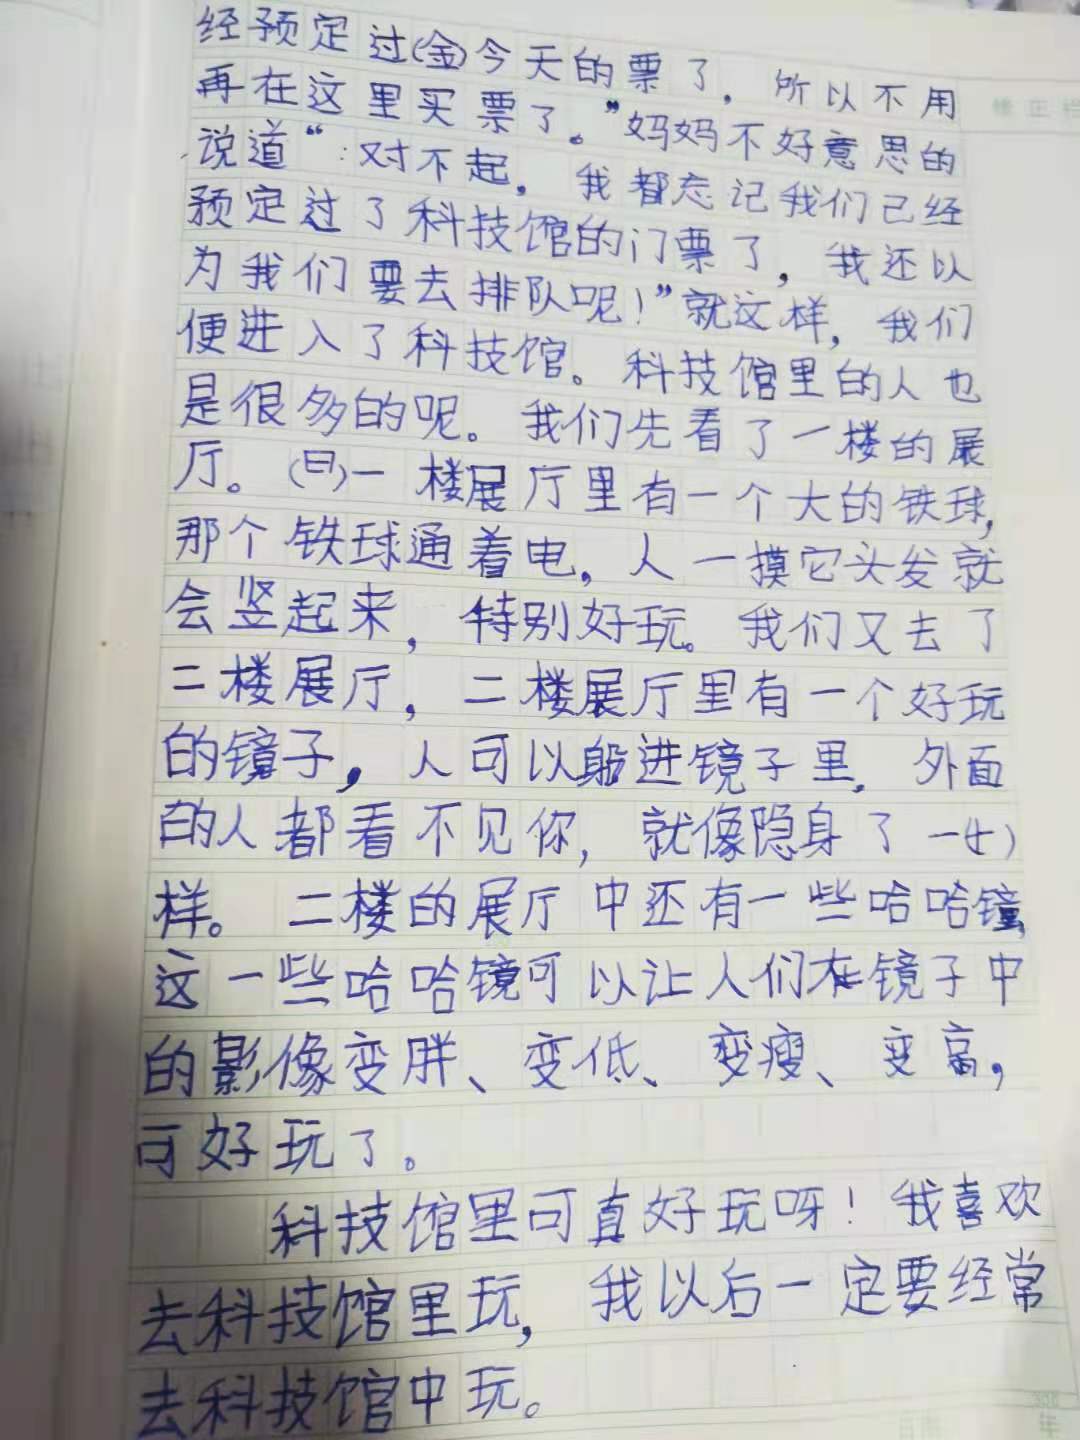 经预定过(金)今天的票了，所以不用
再在这里买票了。”妈妈不好意思的
说道“：对不起，我都忘记我们已经
预定过了科技馆的门票了，我还以
为我们要去排队呢！”就这样，我们
便进入了科技馆。科技馆里的人也
是很多的呢。我们先看了一楼的展
厅。(曰)一楼展厅里有一个大的铁球，
那个铁球通着电，人一摸它头发就
会竖起来，特别好玩。我们又去了
二楼展厅，二楼展厅里有一个好玩
的镜子，人可以躲进镜子里，外面
的人都看不见你，就像隐身了一(木)
样。二楼的展厅中还有一些哈哈镜，
这一些哈哈镜可以让人们在镜子中
的影像变胖、变低、变瘦、变高，
可好玩了。
科技馆里可真好玩呀！我喜欢
去科技馆里玩，我以后一定要经常
去科技馆中玩。